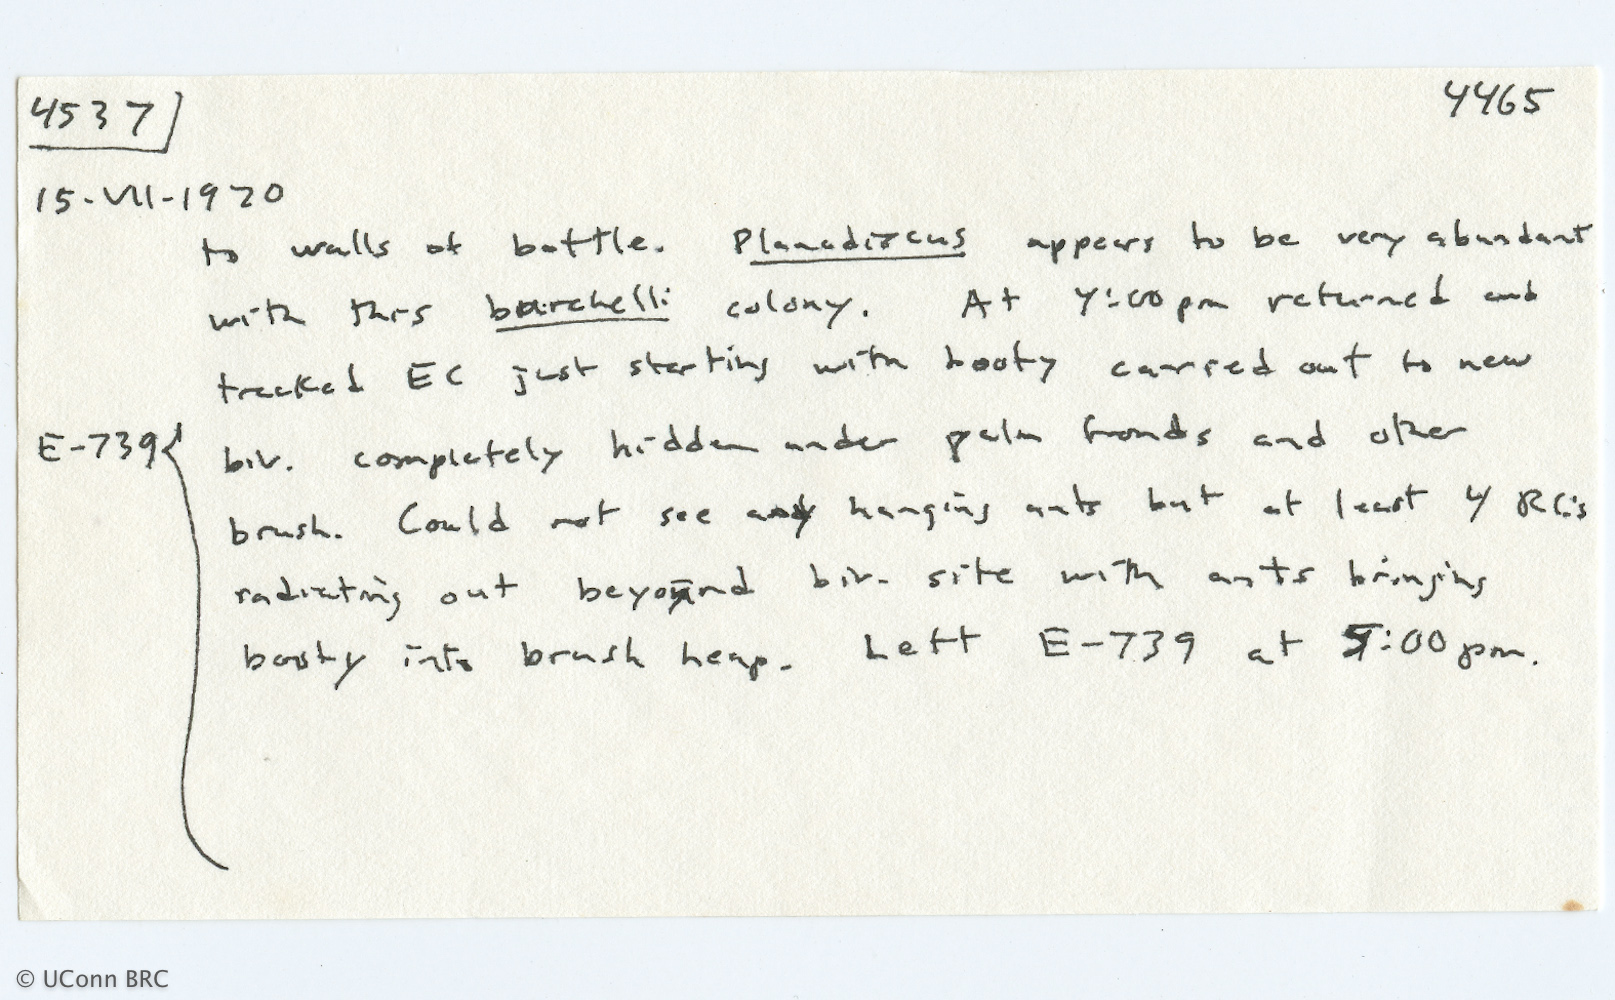 4537 4465
15-VII-1970
to walls of bottle. Planodiscus appears to be very abundant
with this burchelli colony. At 4:00 pm returned and
tracked EC just starting with booty carried out to new
E-739 biv. completely hidden under palm fronds and other
brush. Could not see any hanging ants but at least 4 RC's
radiating out beyond biv. site with ants bringing
booty into brush heap. Left E-739 at 5:00 pm.
© UConn BRC